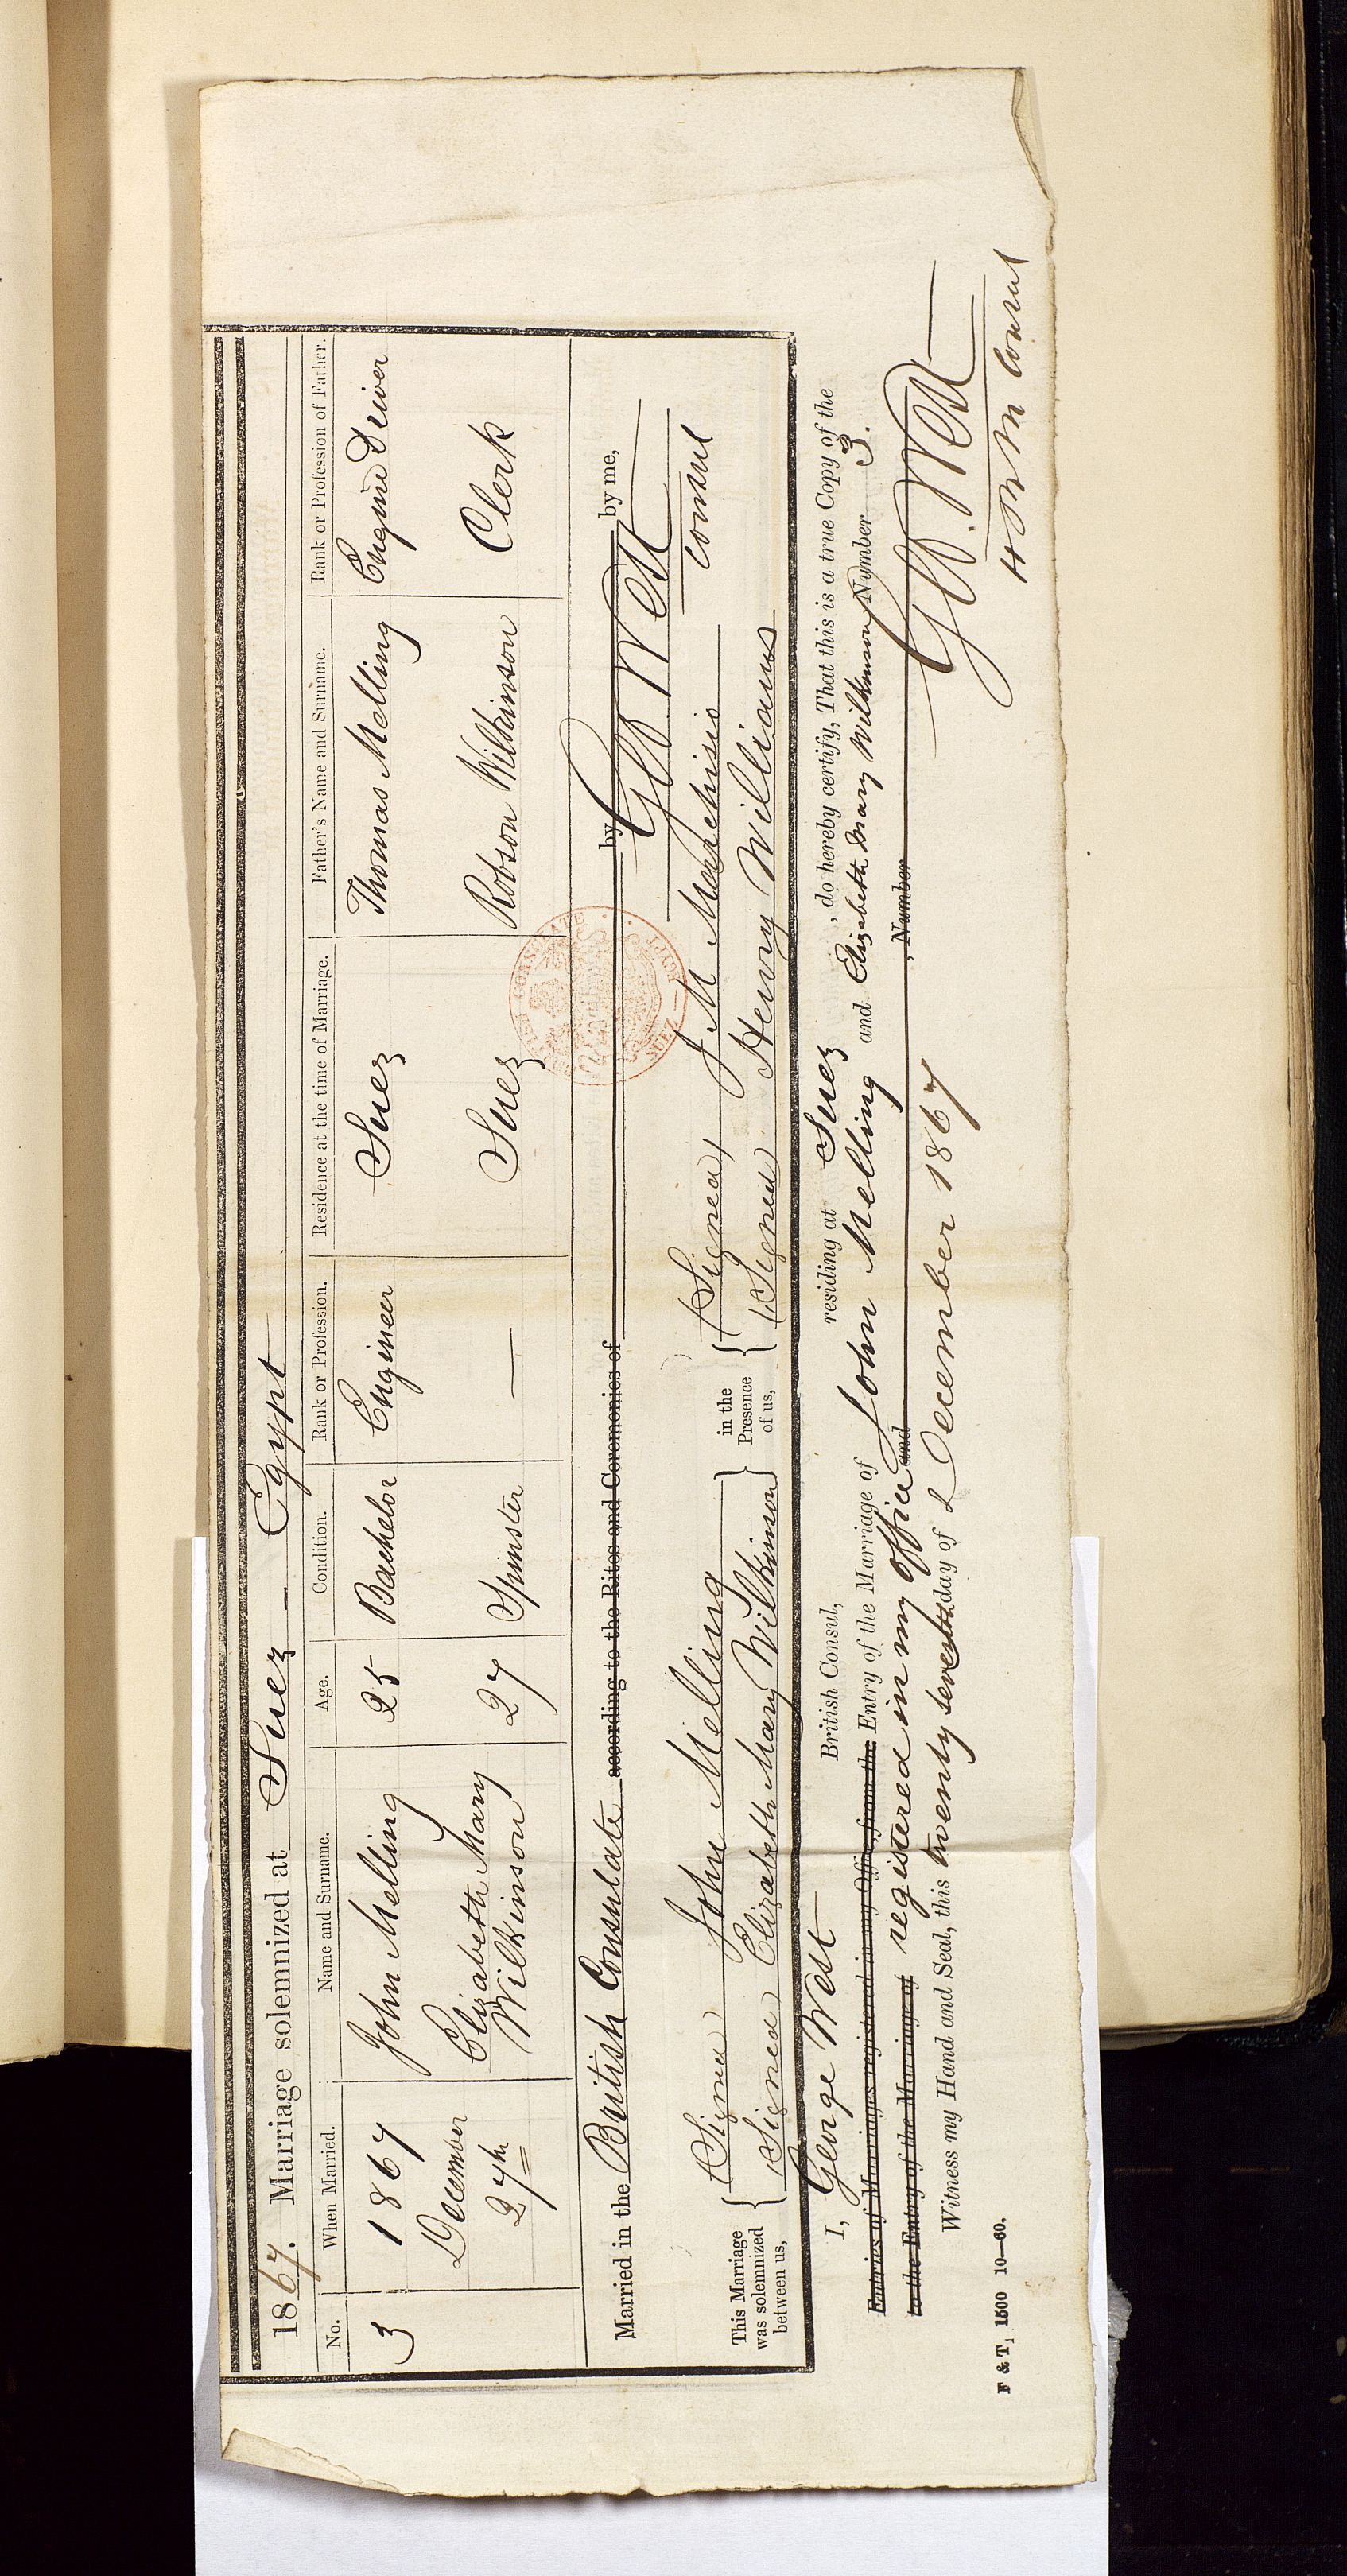 1867. Marriage solemnized at Suez - Egypt
No. When Married. Name and Surname. Age. Condition. Rank or Profession. Residence at the time of Marriage. Father's Name and Surname. Rank or Profession of Father.
3 1867 John Melling 25 Bachelor Engineer Suez Thomas Melling Engine Driver
December Elizabeth Mary
27th Wilkinson 27 Spinster — Suez Robson Wilkinson Clerk
Married in the British Consulate according to the Rites and Ceremonies of by by me,
G W. West
Consul
This Marriage was solemnized between us,
(Signed) John Melling
(Signed) Elizabeth Mary Wilkinson
in the Presence of us,
(Signed) J M Marchisio
(Signed) Henry Williams
BRITISH CONSULATE SUEZ — EGYPT
I, George West British Consul, residing at Suez, do hereby certify, That this is a true Copy of the
Entries of Marriages registered in my Office, from the Entry of the Marriage of John Melling and Elizabeth Mary Wilkinson Number 3.
to the Entry of the Marriage of registered in my office and , Number
Witness my Hand and Seal, this twenty seventh day of December 1867
G W. West
H B M Consul
F & T, 1500 10—60.